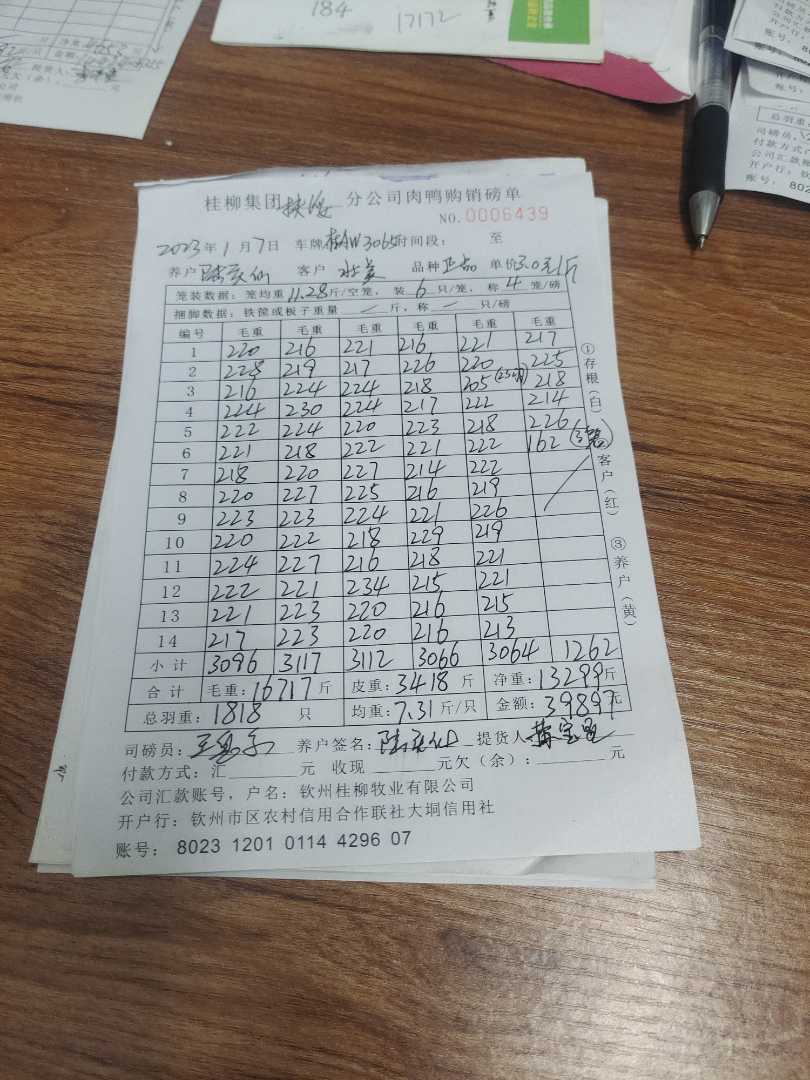 184
17172
桂柳集团扶绥分公司肉鸭购销磅单
NO.0006439
2023年1月7日 车牌桂AW3065时间段： 至
养户 客户 品种正品 单价3.0元/斤
笼装数据：笼均重11.28斤/空笼，装6只/笼，称4笼/磅
捆脚数据：铁筐或板子重量 斤，称 只/磅
编号 毛重 毛重 毛重 毛重 毛重 毛重
1 220 216 221 216 221 217
2 228 219 217 226 220 225
3 216 224 224 218 205 218
4 224 230 224 217 222 214
5 222 224 220 223 218 226
6 221 218 222 221 222 162
7 218 220 227 214 222
8 220 227 225 216 219
9 223 223 224 221 226
10 220 222 218 229 219
11 224 227 216 218 221
12 222 221 234 215 221
13 221 223 220 216 215
14 217 223 220 216 213
小计 3096 3117 3112 3066 3064 1262
合计 毛重：16717斤 皮重：3418斤 净重：13299斤
总羽重：1818只 均重：7.31斤/只 金额：39897元
司磅员： 养户签名： 提货人
付款方式：汇 元 收现 元欠（余）： 元
公司汇款账号，户名：钦州桂柳牧业有限公司
开户行：钦州市区农村信用合作联社大垌信用社
账号：8023 1201 0114 4296 07
①存根（白） 客户（红） ③养户（黄）